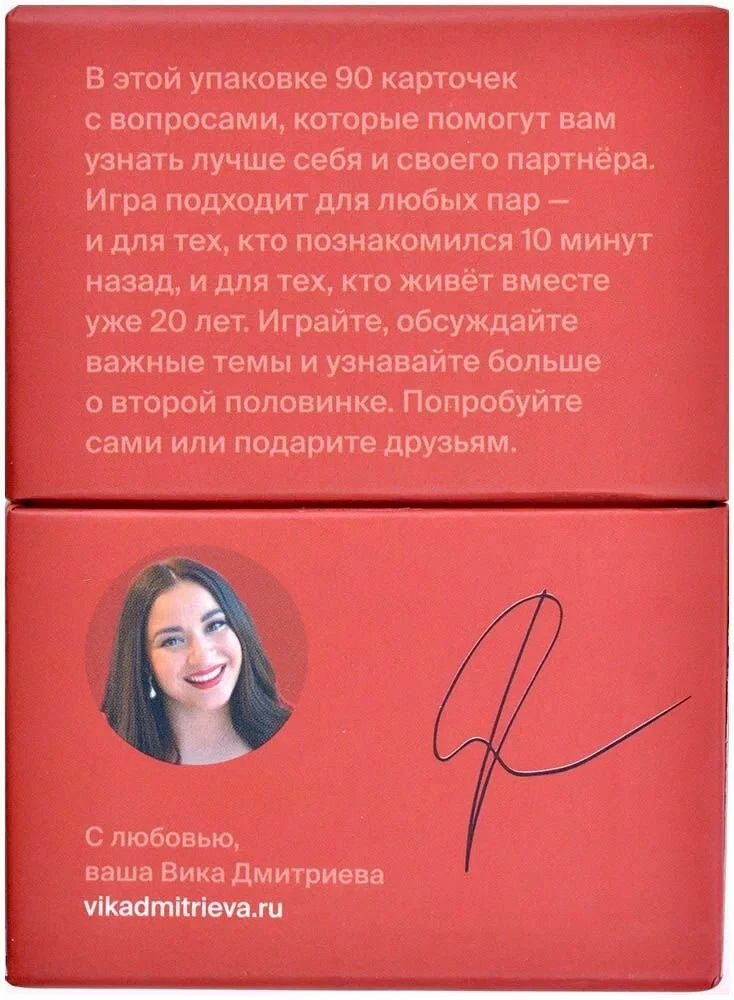 В этой упаковке 90 карточек
с вопросами, которые помогут вам
узнать лучше себя и своего партнёра.
Игра подходит для любых пар —
и для тех, кто познакомился 10 минут
назад, и для тех, кто живёт вместе
уже 20 лет. Играйте, обсуждайте
важные темы и узнавайте больше
о второй половинке. Попробуйте
сами или подарите друзьям.
С любовью,
ваша Вика Дмитриева
vikadmitrieva.ru